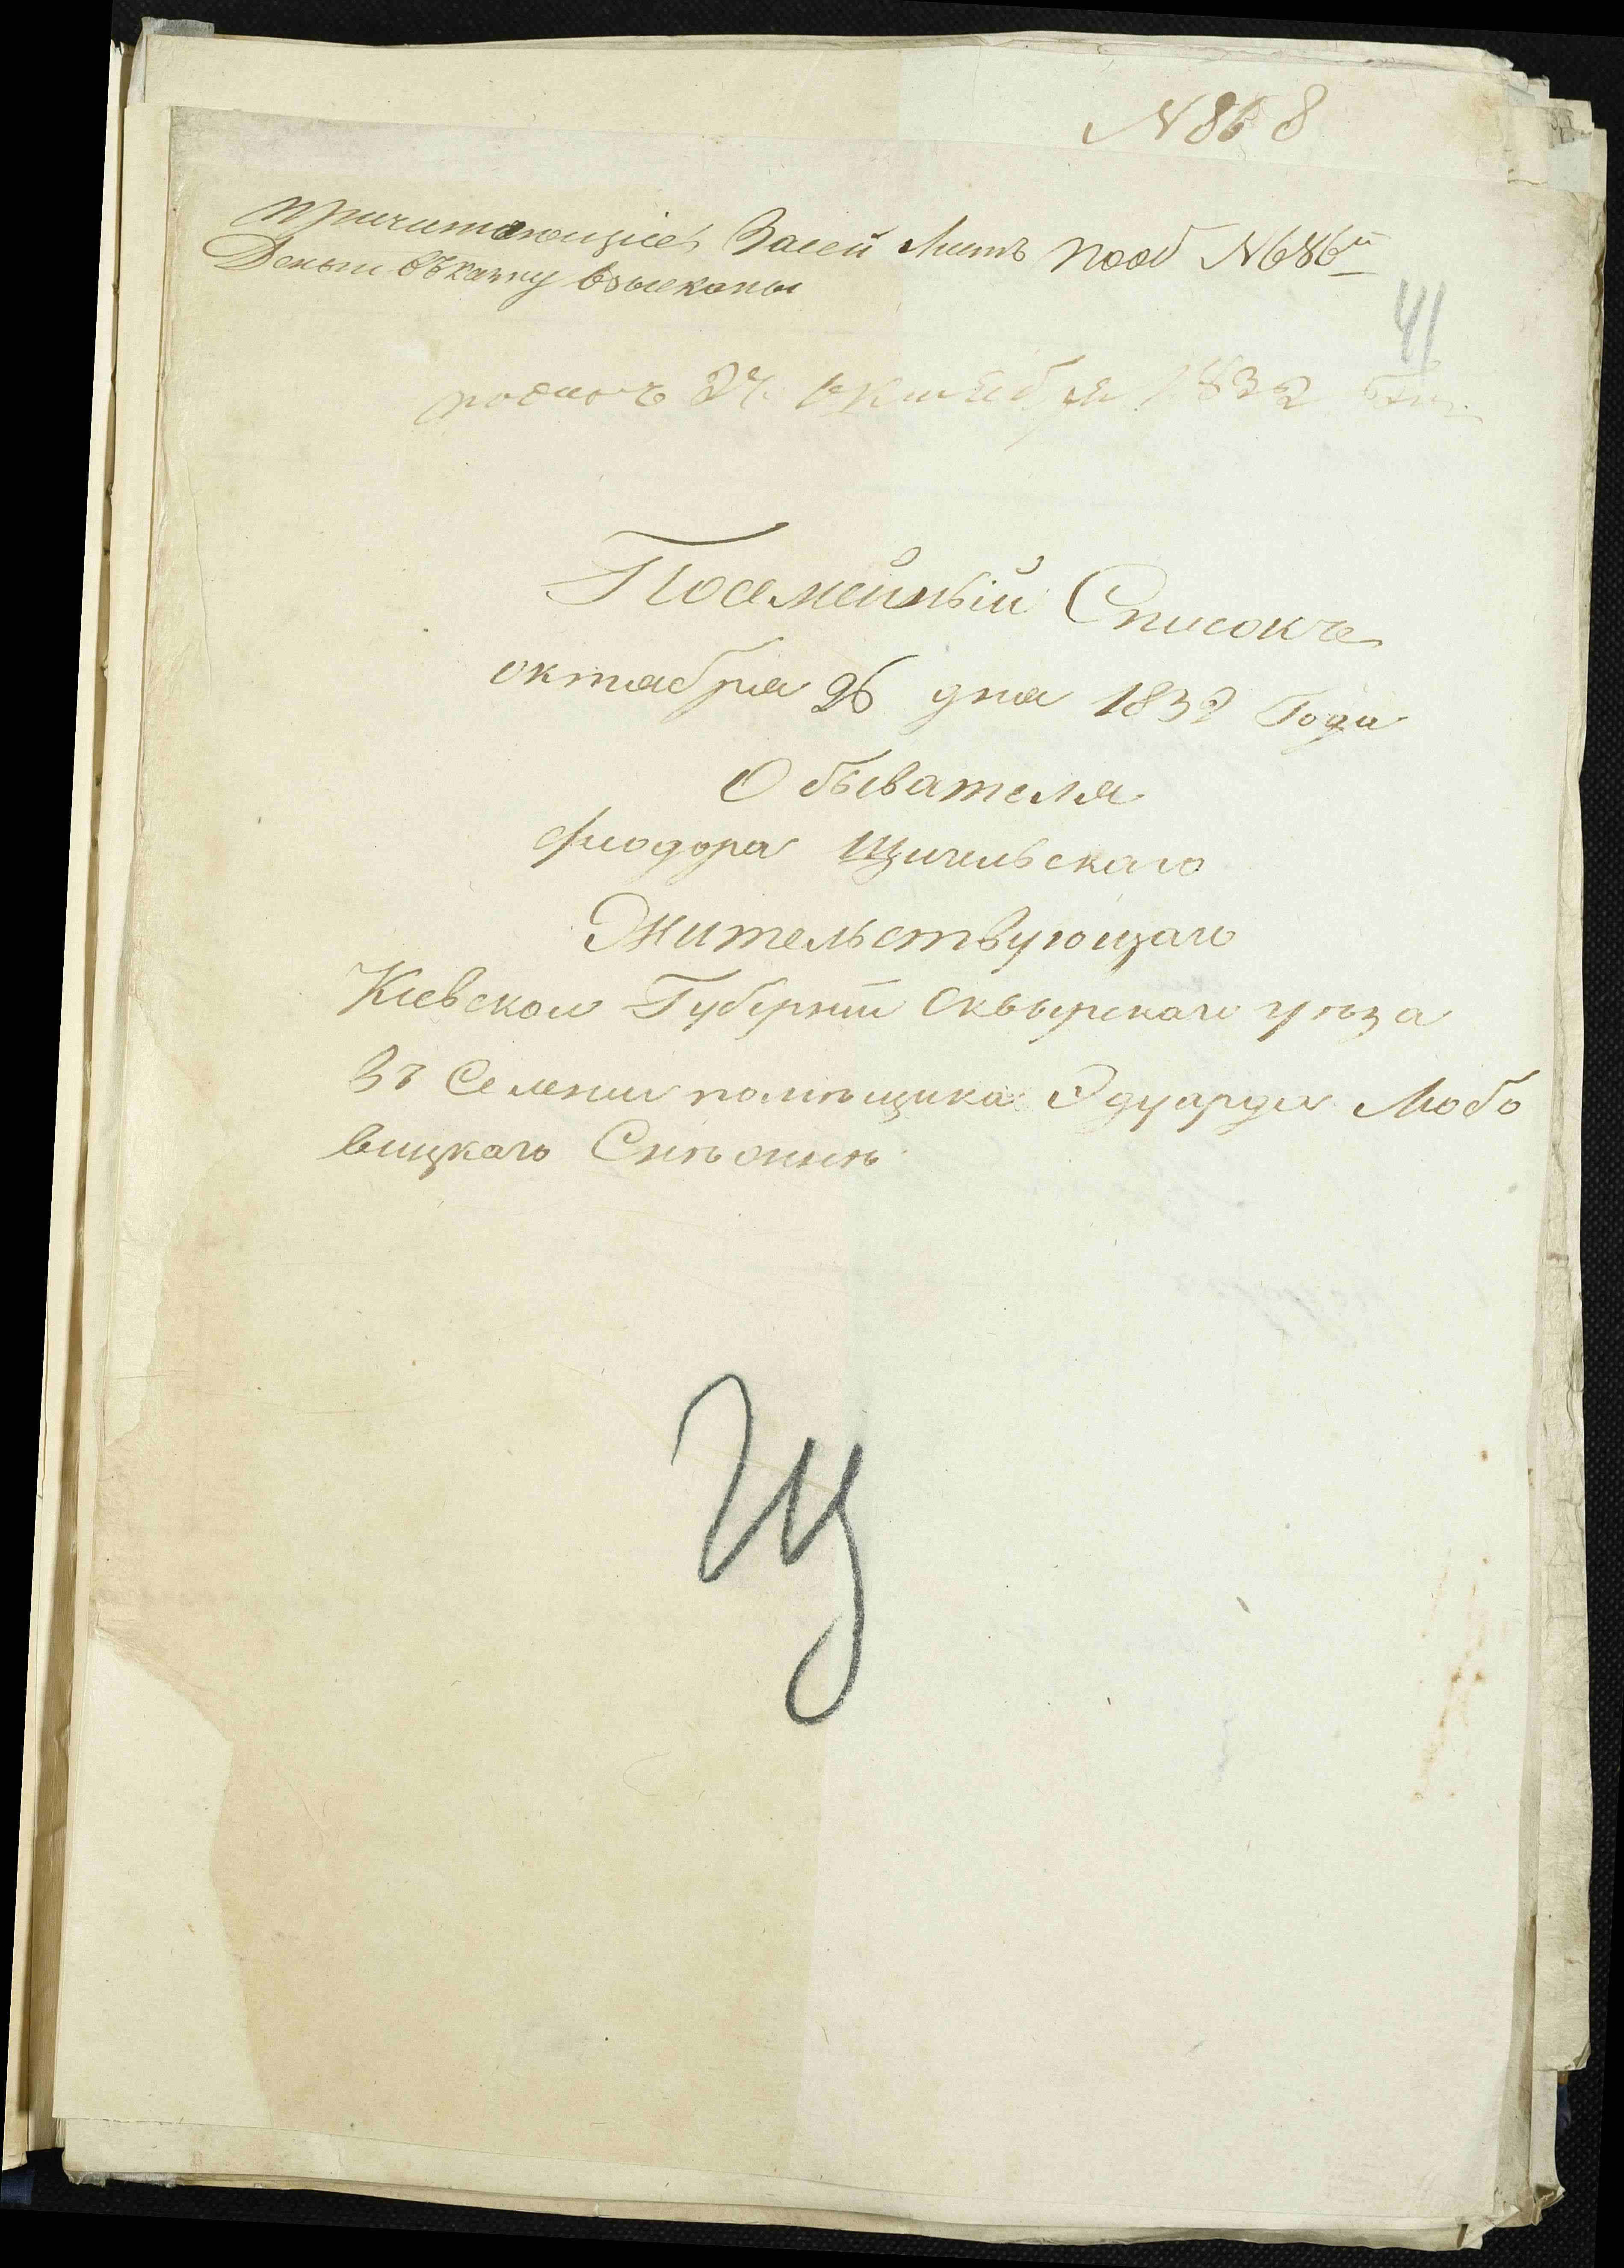 N 868
Причитающiеся Засей Листъ подъ N 686й
Деньги въ казну взысканы
41
октября 1832
Посемейный Списокъ
октября 26 дня 1832 Года
Обывателя
Фиодора Щицельскаго
Жительствующаго
Кiевской Губернiи Сквырскаго уѣза
Въ Селении помѣщика Эдуарда Любо
вицкаго
Щ